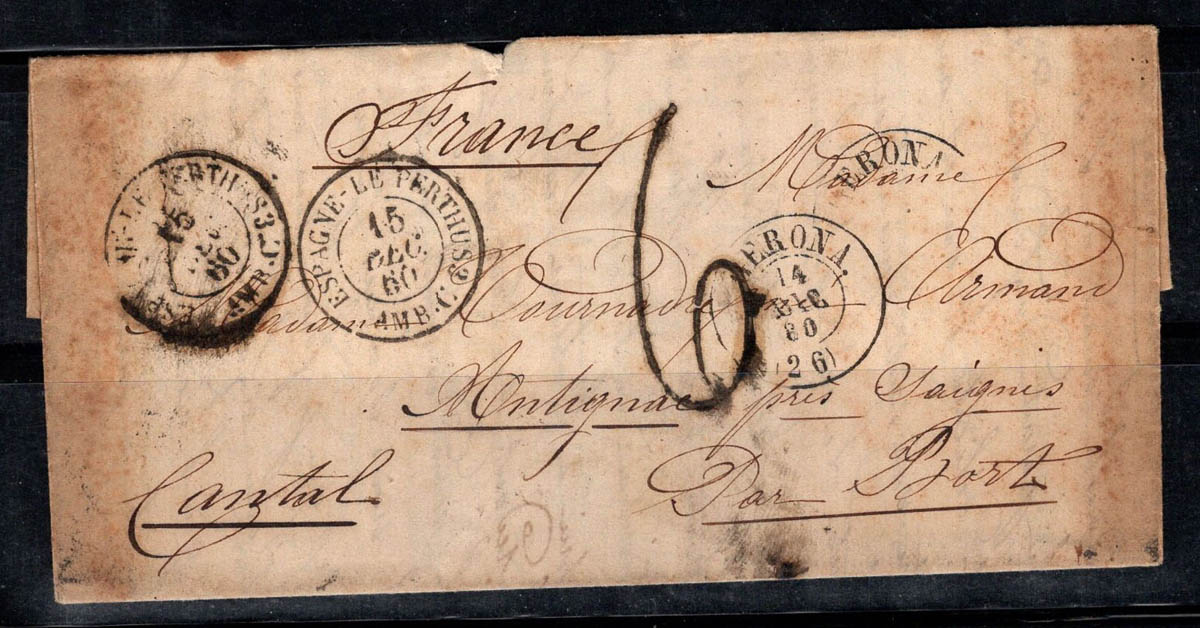 France
Madame
Madame Tournadre née Armand
Antignac près Saignes
Par Bort
Cantal
6
ESPAGNE-LE PERTHUS
AMB. C
15
DEC.
60
ESPAGNE-LE PERTHUS
AMB. C
15
60
GERONA
GERONA.
14
DIC
60
(26)